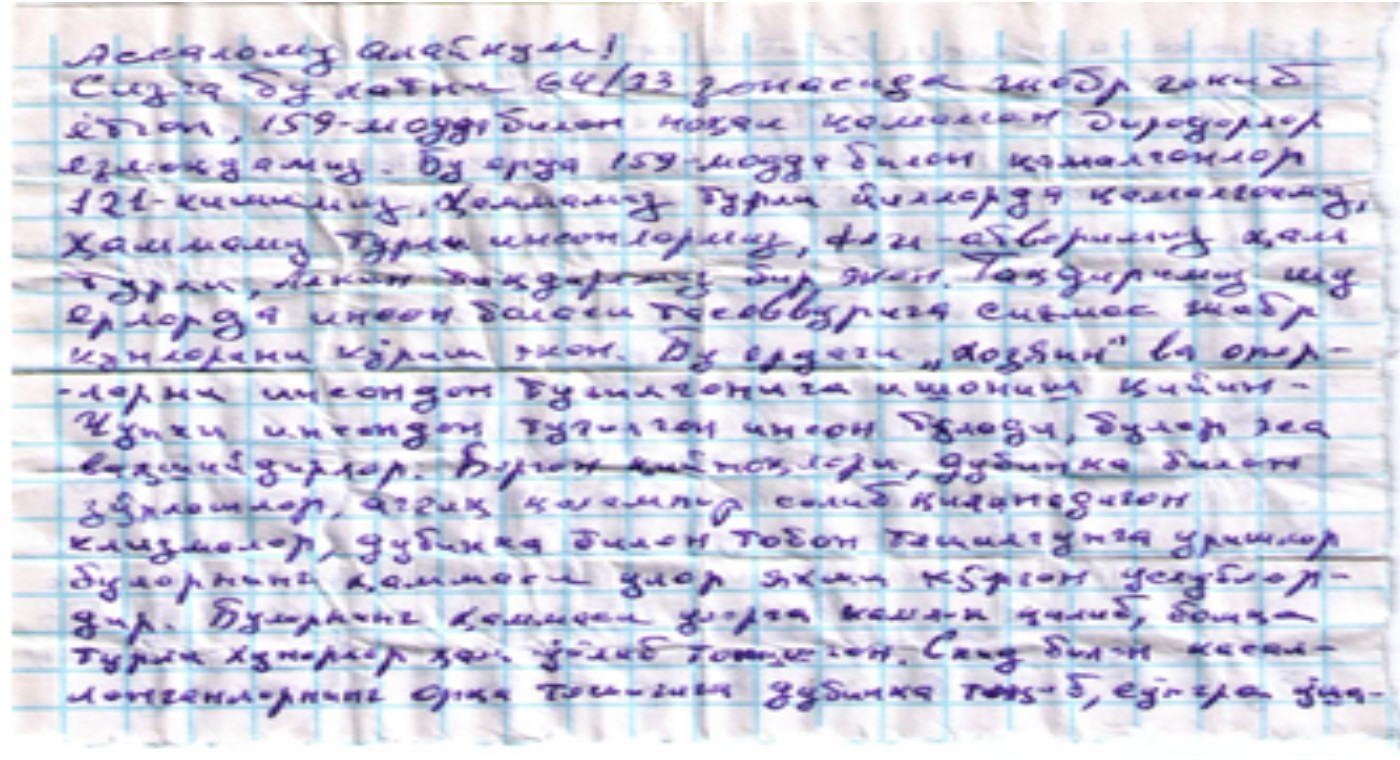 Ассалому алайкум!
Сизга бу хатни 64/33 зонасида жабр чекиб
ётган, 159-модда билан ноҳақ қамалган биродарлар
езмоқдамиз. Бу ерда 159-модда билан қамалганлар
121-кишимиз, Ҳаммамиз турли йилларда қамалганмиз,
Ҳаммамиз турли инсонлармиз, феъл-атворимиз ҳам
турли, лекин тақдиримиз бир экан. Тақдиримиз шу
ерларда инсон боласи тасаввурига сиғмас жабр
кунларини кўриш экан. Бу ердаги „хозяин" ва опер-
-ларни инсондан туғилганига ишониш қийин-
Чунки инсондан туғилган инсон бўлади, булар эса
ваҳшийдирлар. Берган қийноқлари, дубинка билан
зўрлашлар, аччиқ қалампир солиб қиланадиган
клизмалар, дубинка билан товон тешилгунга уришлар
буларнинг ҳаммаси улар яхши кўрган услублар-
дир. Буларнинг ҳаммаси уларга камлик қилиб, бошқа
турли ҳунарлар ҳам ўйлаб топишган. Спид билан касал-
ланганларнинг орқа тешигига дубинка тиқиб, сўнгра ўша-